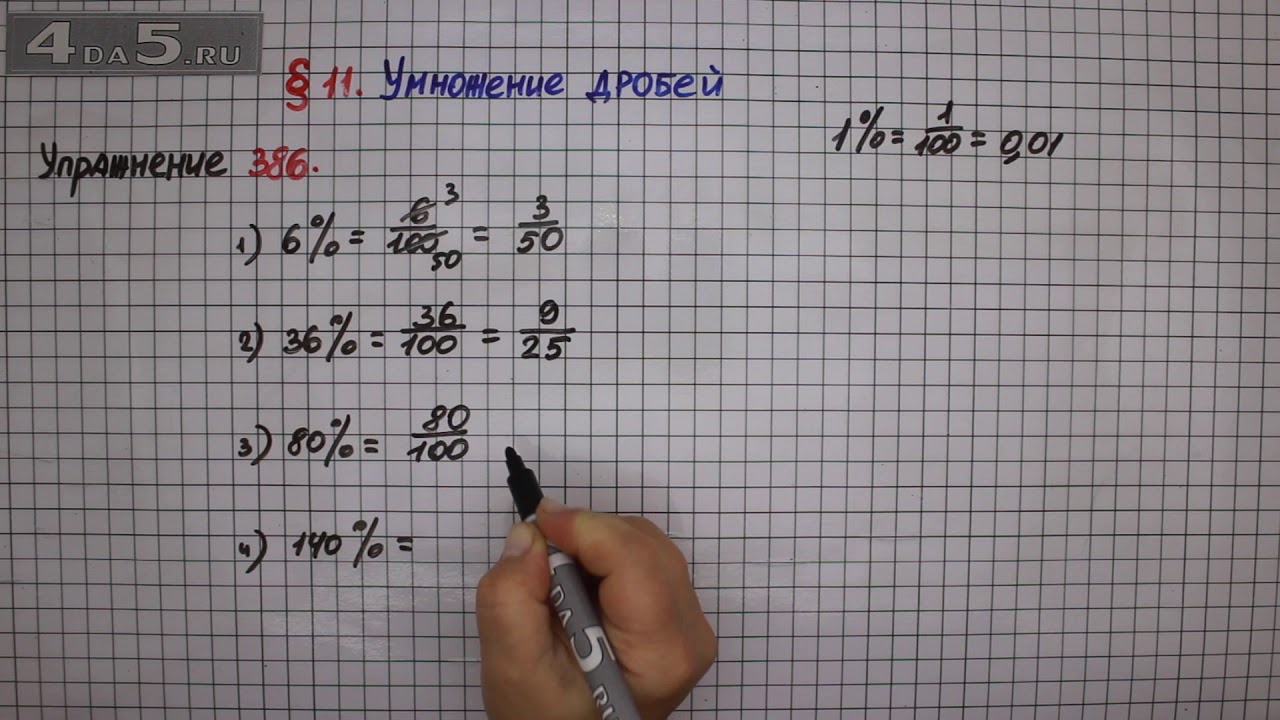 4DA5.RU
§ 11. Умножение дробей
1% = 1/100 = 0,01
Упражнение 386.
1) 6% = 6/100 3 50 = 3/50
2) 36% = 36/100 = 9/25
3) 80% = 80/100
4) 140% =
4DA5.RU